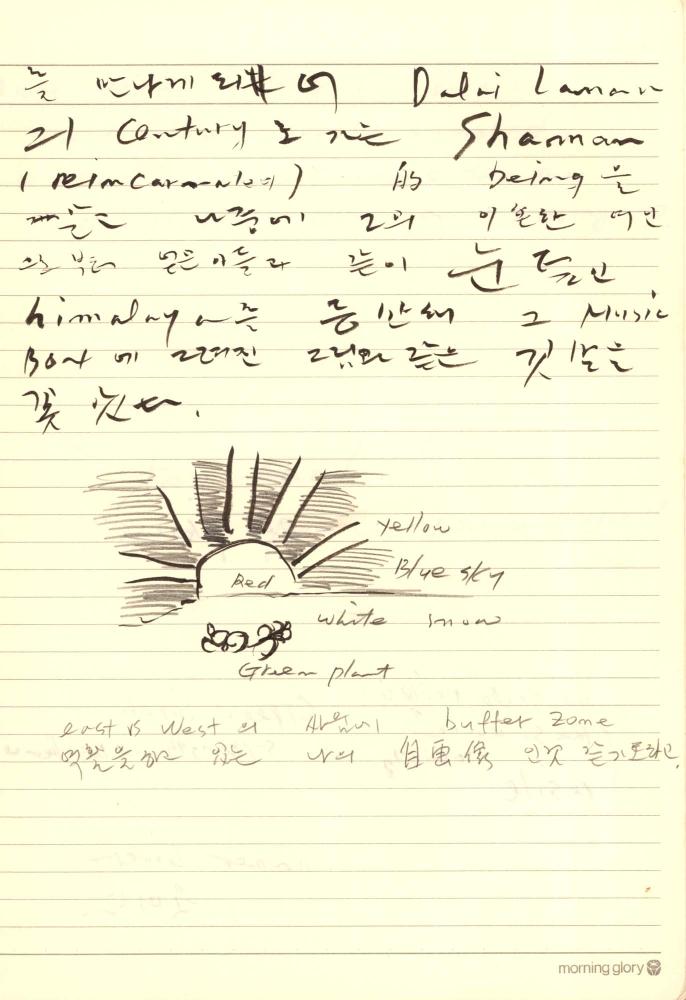 를 만나게 되어 Dalai Laman
21 Century로 가는 Shaman
(reincarnated) 的 being을
나중에 그의 이혼한 여인
으로부터 얻은 아들과 같이 눈 덮인
himalaya를 등반해 그 Music
Box에 그려진 그림과 같은 깃발을
꽂았다.
yellow
Blue sky
Red
white snow
Green plant
east vs West의 싸움에 buffer zone
역활을 하고 있는 나의 自画像 인것 같기도하고,
morning glory